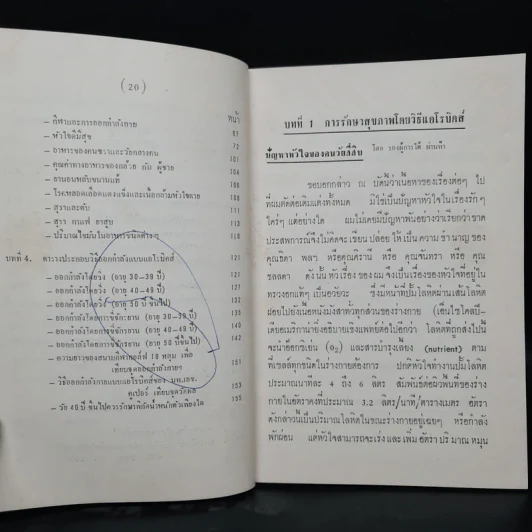 (20)
หน้า
- กีฬาและการออกกำลังกาย 67
- หัวใจดีมีสุข 75
- อาหารของคนชราและวัยกลางคน 101
- คุณค่าทางอาหารของกล้วย กับ ผู้ชาย 104
- ยานอนหลับขนานแท้ 105
- โรคหลอดเลือดแดงแข็งและเนื้อกล้ามหัวใจตาย 108
- สุราและตับ 111
- สุรา กาแฟ ยาสูบ 115
- ปริมาณไขมันในอาหารชนิดต่างๆ 118
บทที่ 4. ตารางประกอบวิธีออกกำลังแบบแอโรบิคส์ 121
- ออกกำลังโดยวิ่ง (อายุ 30–39 ปี) 121
- ออกกำลังโดยวิ่ง (อายุ 40–49 ปี) 127
- ออกกำลังโดยวิ่ง (อายุ 50 ปีขึ้นไป) 132
- ออกกำลังโดยการขี่จักรยาน (อายุ 30–39 ปี) 135
- ออกกำลังโดยการขี่จักรยาน (อายุ 40–49 ปี) 138
- ออกกำลังโดยการขี่จักรยาน (อายุ 50 ปีขึ้นไป) 142
- ความยาวของสนามกอล์ฟ 18 หลุม เพื่อ
เทียบชุดออกกำลังกายฯ 151
- วิธีออกกำลังกายแบบแอโรบิคส์ของ นพ.เคน.
คูเปอร์ เทียบชุดวัดผล 153
- วัย 40 ปี ขึ้นไปควรรักษาพิกัดน้ำหนักตัวเพียงใด 155
บทที่ 1 การรักษาสุขภาพโดยวิธีแอโรบิคส์
ปัญหาหัวใจของคนวัยสี่สิบ โดย รองผู้การใต้ ผ่านฟ้า
ขอบอกกล่าว ณ บัดนี้ว่าเนื้อหาของเรื่องต่อๆ ไป
ที่ผมคัดต่อเติมแต่งทั้งหมด มิใช่เป็นปัญหาหัวใจในเรื่องรักๆ
ใคร่ๆ แต่อย่างใด ผมไม่เคยมีปัญหาพันอย่างว่าเรียกว่าขาด
ประสพการณ์จึงไม่คิดจะเขียน ปล่อยให้เป็นความชำนาญของ
คุณธิดา พลฯ หรือคุณศิรานี หรือ คุณจันทรา หรือ คุณ
ชลลดา ดังนั้นหัวเรื่องของผมจึงเป็นเรื่องของหัวใจที่อยู่ใน
ทรวงอกแท้ๆ เป็นอวัยวะ ซึ่งมีหน้าที่ปั๊มโลหิตผ่านเส้นโลหิต
ฝอยไปยังเนื้อหนังมังสาทั่วทุกส่วนของร่างกาย
จะนำอ๊อกซิเจ่น (O₂) และสารบำรุงเลี้ยง (nutrient) ตาม
ที่เซลล์ทุกชนิดในร่างกายต้องการ ปกติหัวใจทำงานปั๊มโลหิต
ประมาณนาทีละ 4 ถึง 6 ลิตร สัมพันธ์ต่อผิวพื้นที่ของร่าง
กายในอัตราคงที่ประมาณ 3.2 ลิตร/นาที/ตารางเมตร อัตรา
ดังกล่าวนี้เป็นปริมาณโลหิตในขณะร่างกายอยู่เฉยๆ หรือกำลัง
พักผ่อน แต่หัวใจสามารถจะเร่ง และ เพิ่ม อัตรา ปริมาณ หมุน